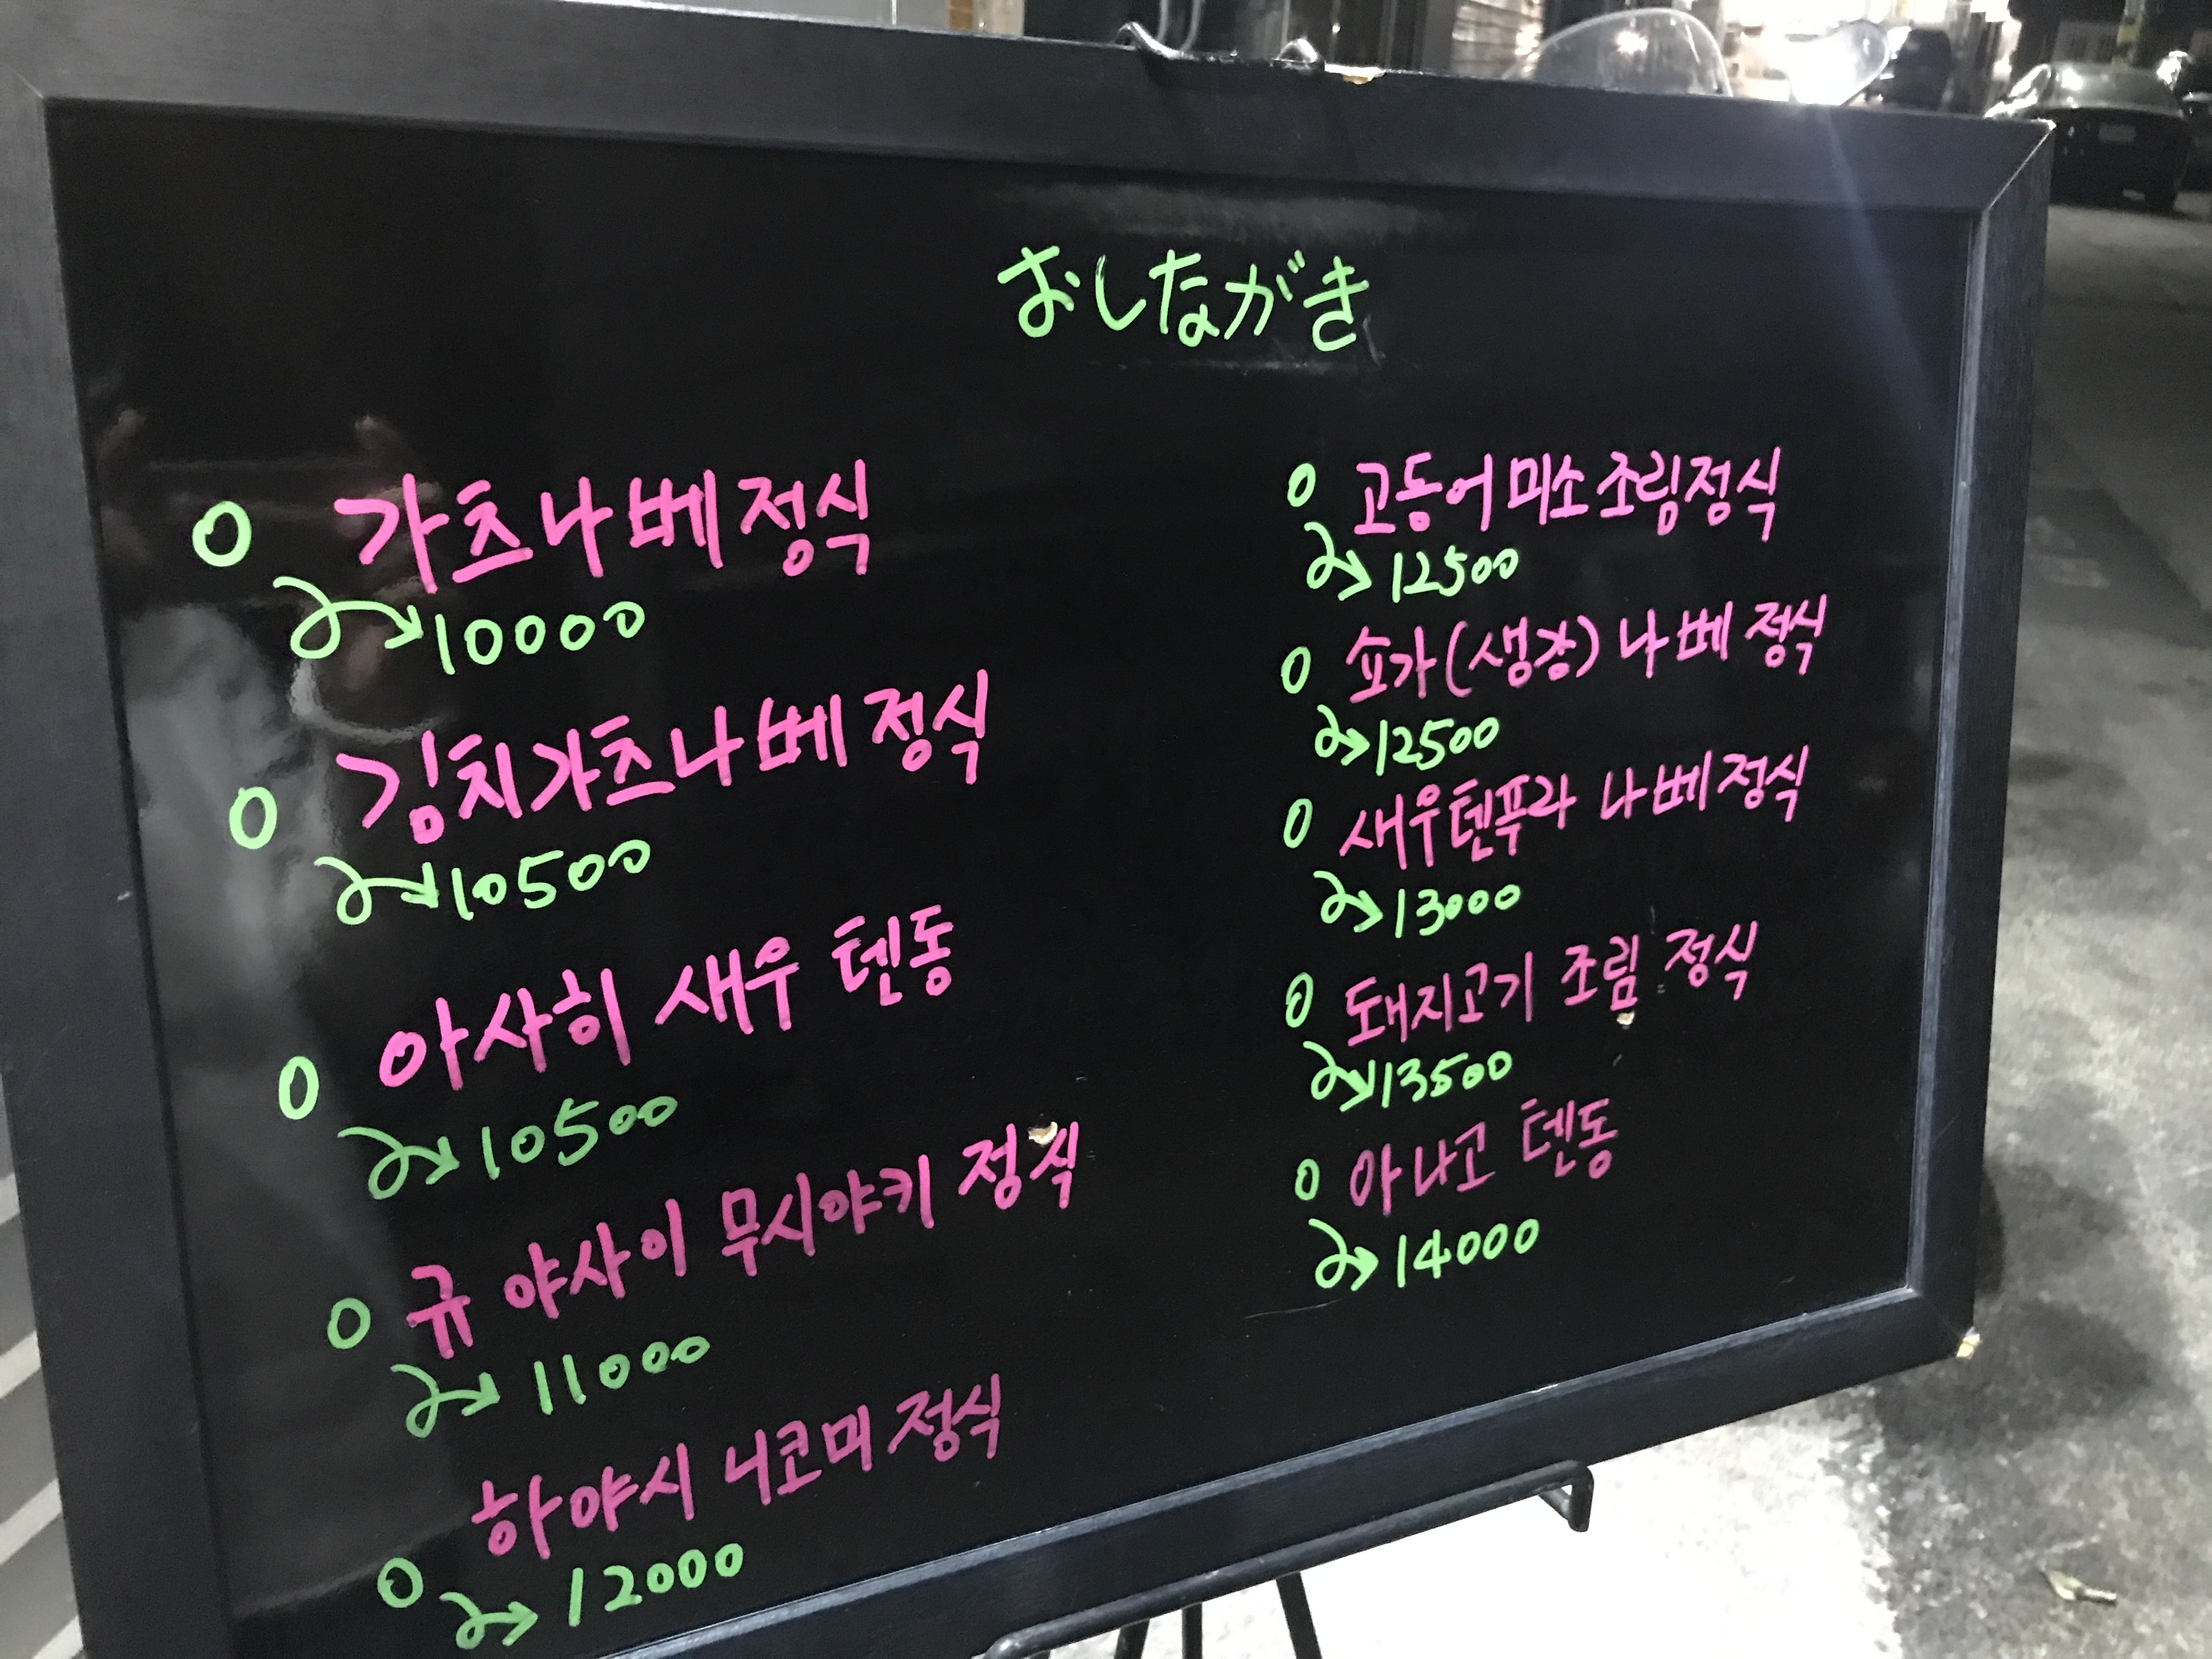 おしながき
o 가츠나베정식
10000
o 김치가츠나베정식
10500
o 아사히 새우 텐동
10500
o 규 야사이 무시야키 정식
11000
o 하야시 니코미 정식
12000
o 고등어 미소 조림정식
12500
o 쇼가(생강) 나베 정식
12500
o 새우텐푸라 나베정식
13000
o 돼지고기 조림 정식
13500
o 아나고 텐동
14000